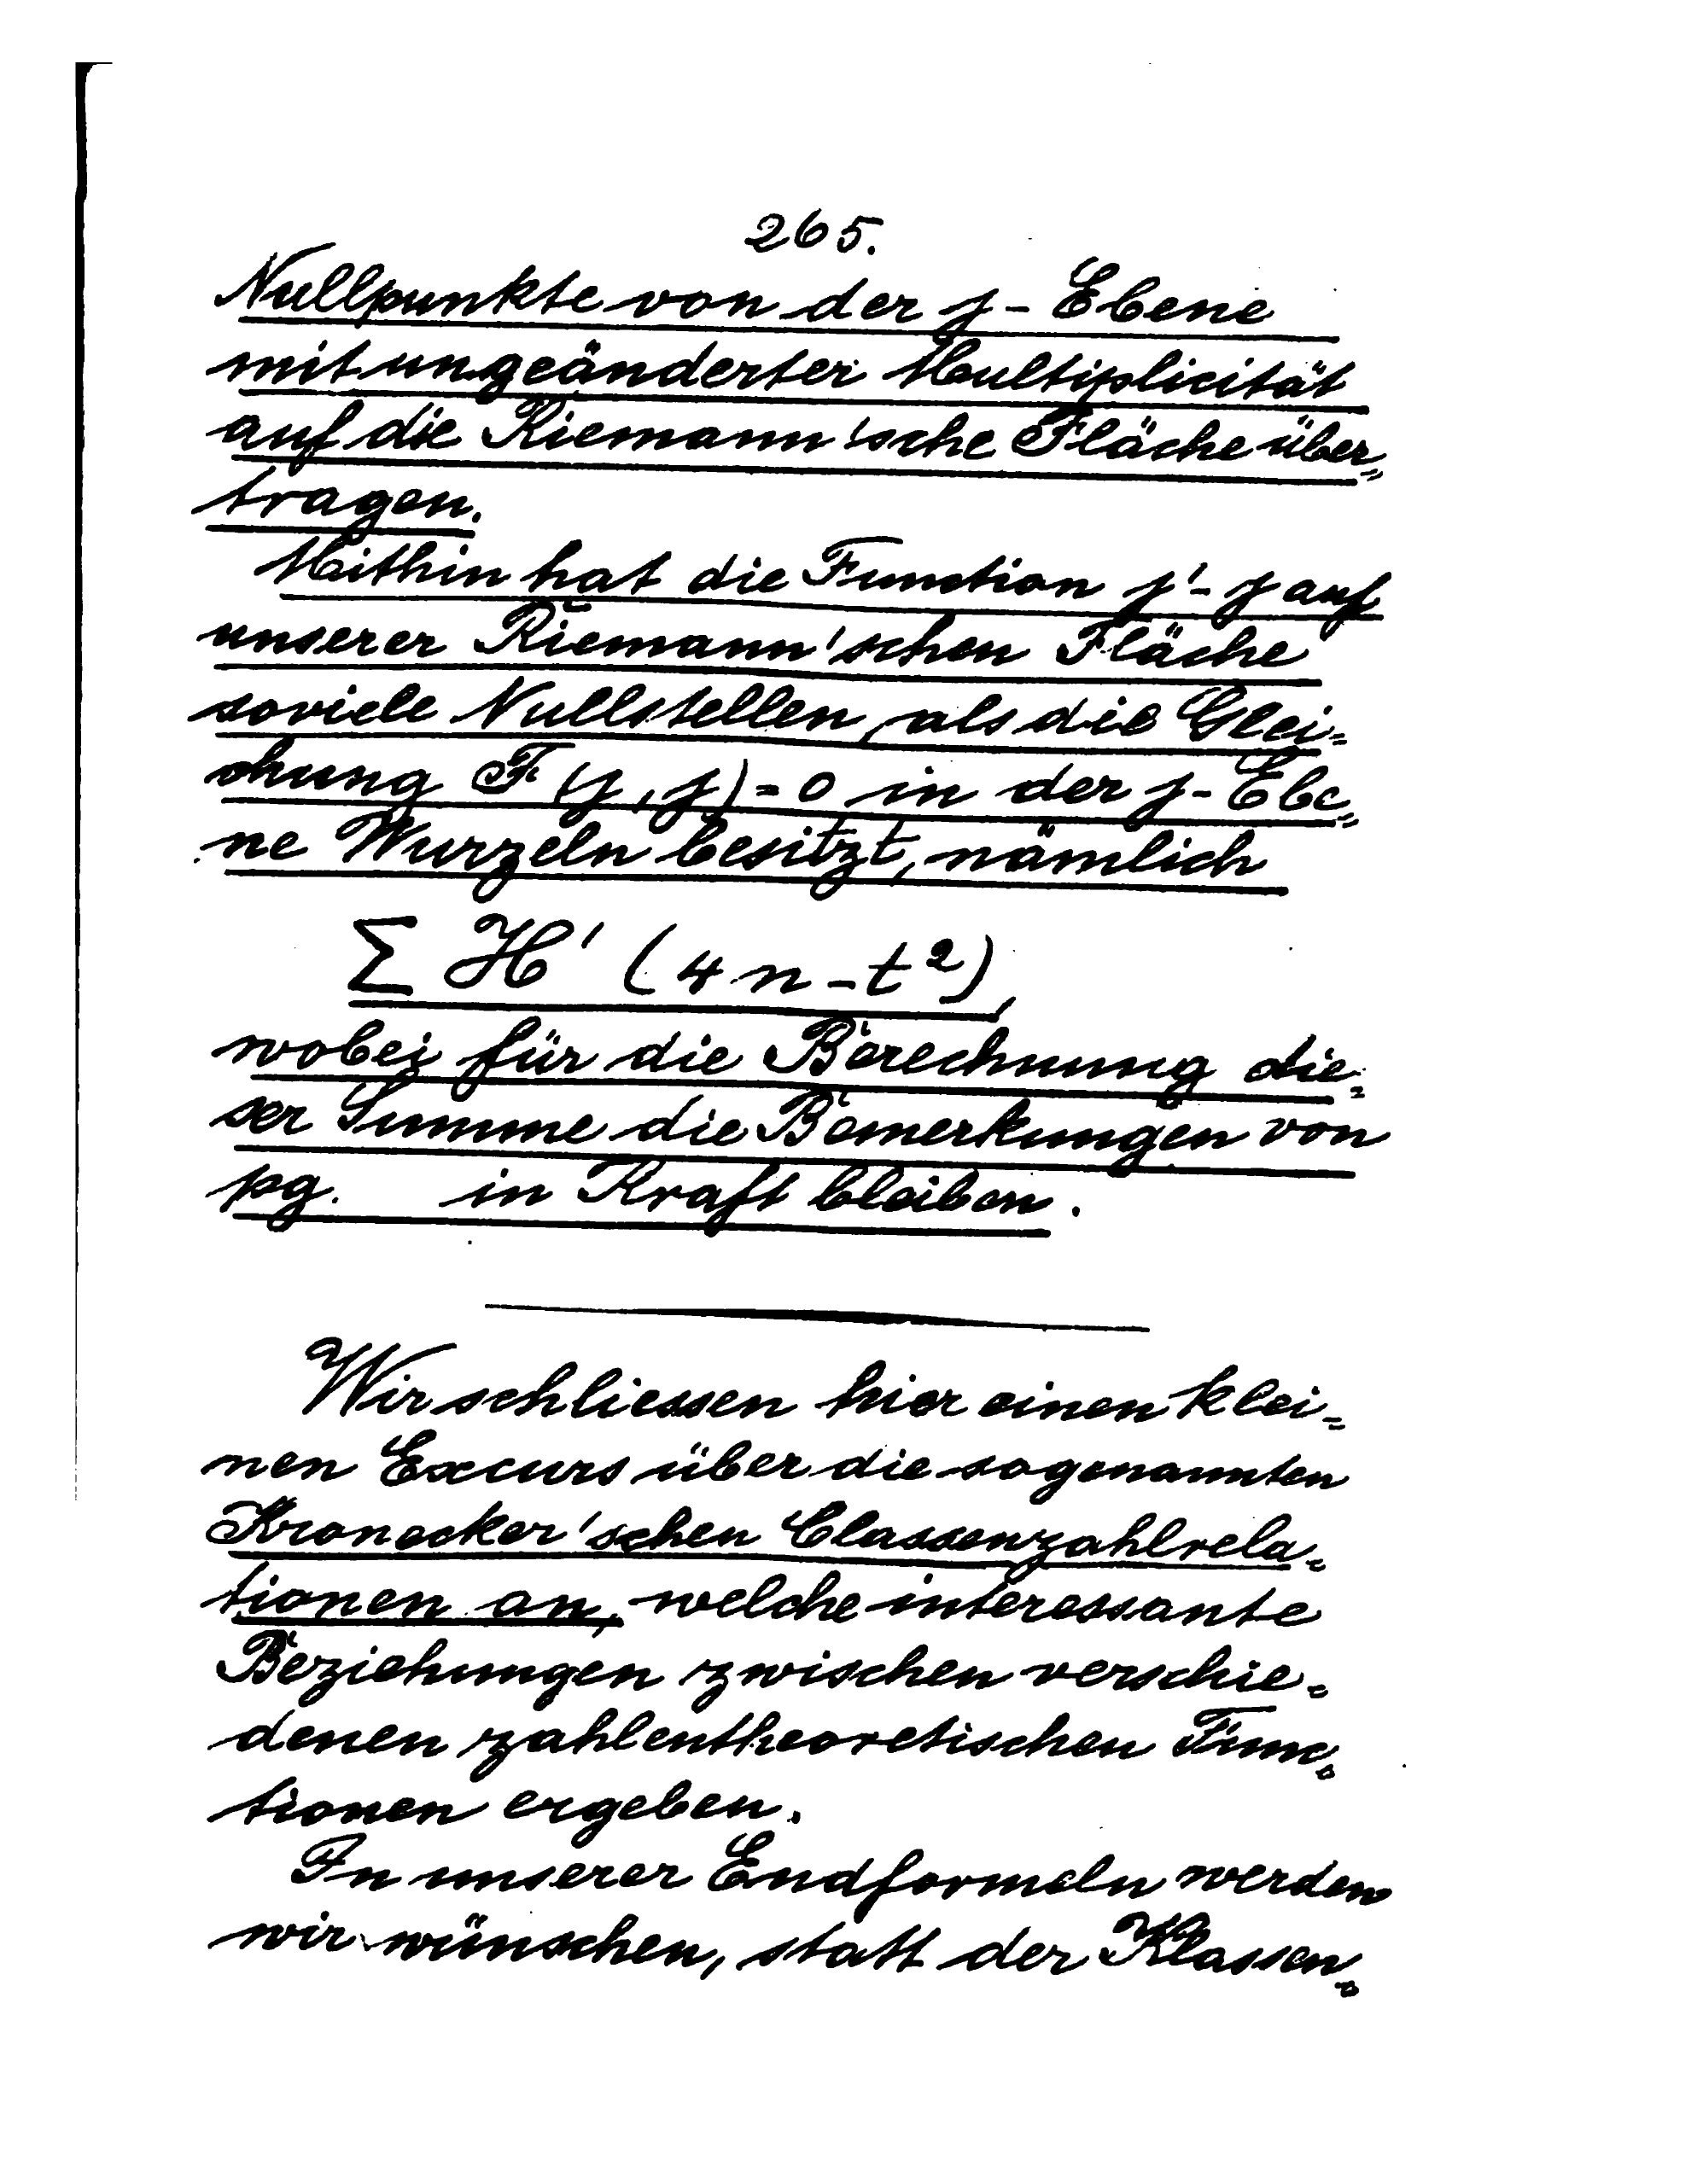 265.
Nullpunkte von der j-Ebene
mit ungeänderter Multiplicität
auf die Riemann'sche Fläche über=
tragen.
Mithin hat die Function j'-j auf
unserer Riemann'schen Fläche
soviele Nullstellen, als die Glei=
chung F(j,j)=0 in der j-Ebe=
ne Wurzeln besitzt, nämlich
Σ H' (4n-t²),
wobei für die Berechnung die=
ser Summe die Bemerkungen von
pg. in Kraft bleiben.
Wir schliessen hier einen klei=
nen Excurs über die sogenannten
Kronecker'schen Classenzahlrela=
tionen an, welche interessante
Beziehungen zwischen verschie=
denen zahlentheoretischen Func=
tionen ergeben.
In unserer Endformeln werden
wir wünschen, statt der Klassen=